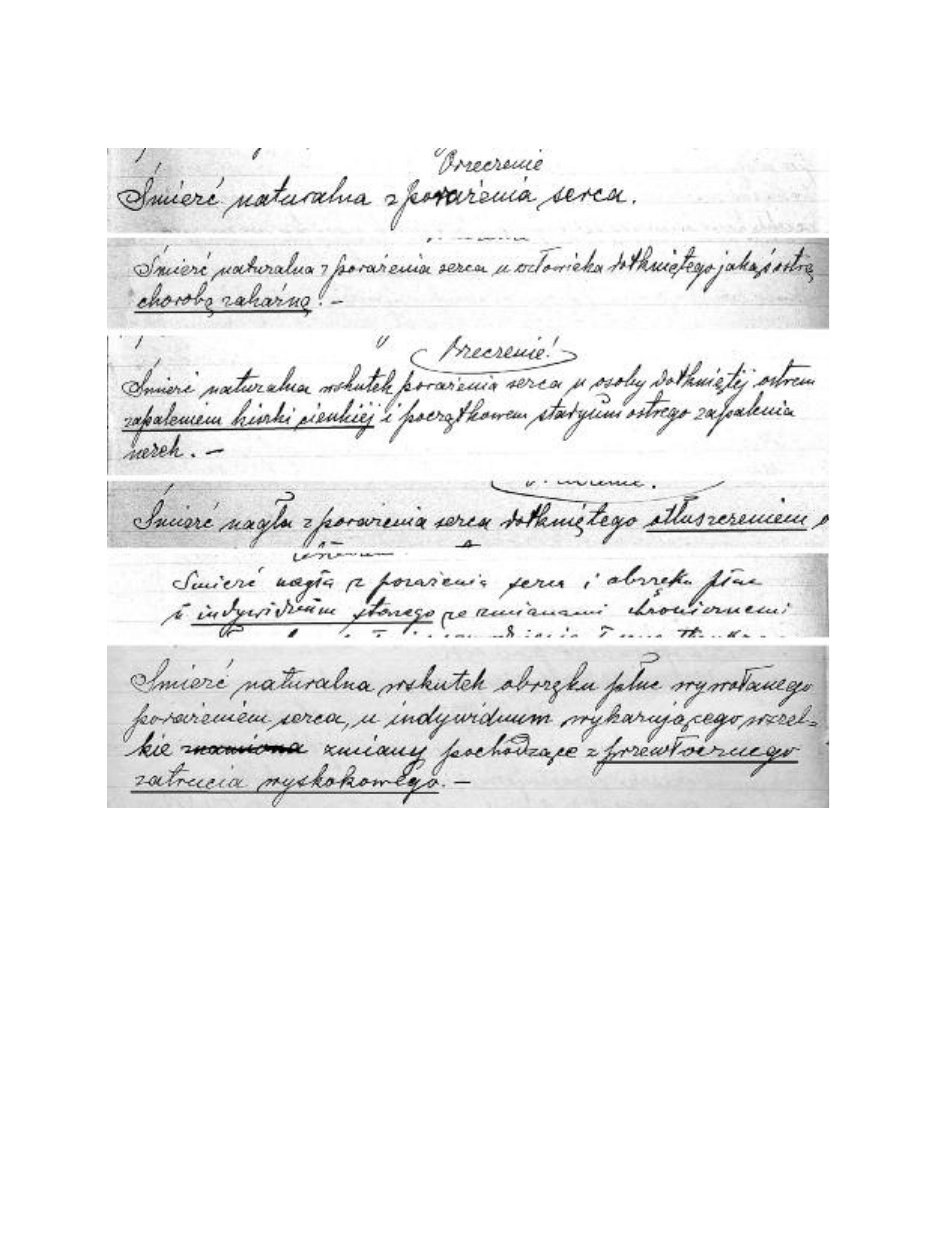 Orzeczenie
Śmierć naturalna z porażenia serca.
Śmierć naturalna z porażenia serca u człowieka dotkniętego jakąś ostrą
chorobą zakaźną. –
Orzeczenie!
Śmierć naturalna wskutek porażenia serca u osoby dotkniętej ostrem
zapaleniem kiszki cienkiéj i początkowem stadyum ostrego zapalenia
nerek. –
Śmierć nagła z porażenia serca dotkniętego otłuszczeniem
Śmierć nagła z porażenia serca i obrzęku płuc
u indywiduum starego ze zmianami chronicznemi
Śmierć naturalna wskutek obrzęku płuc wywołanego
porażeniem serca, u indywiduum wykazującego wszel-
kie znamiona zmiany pochodzące z przewłocznego
zatrucia wyskokowego. –